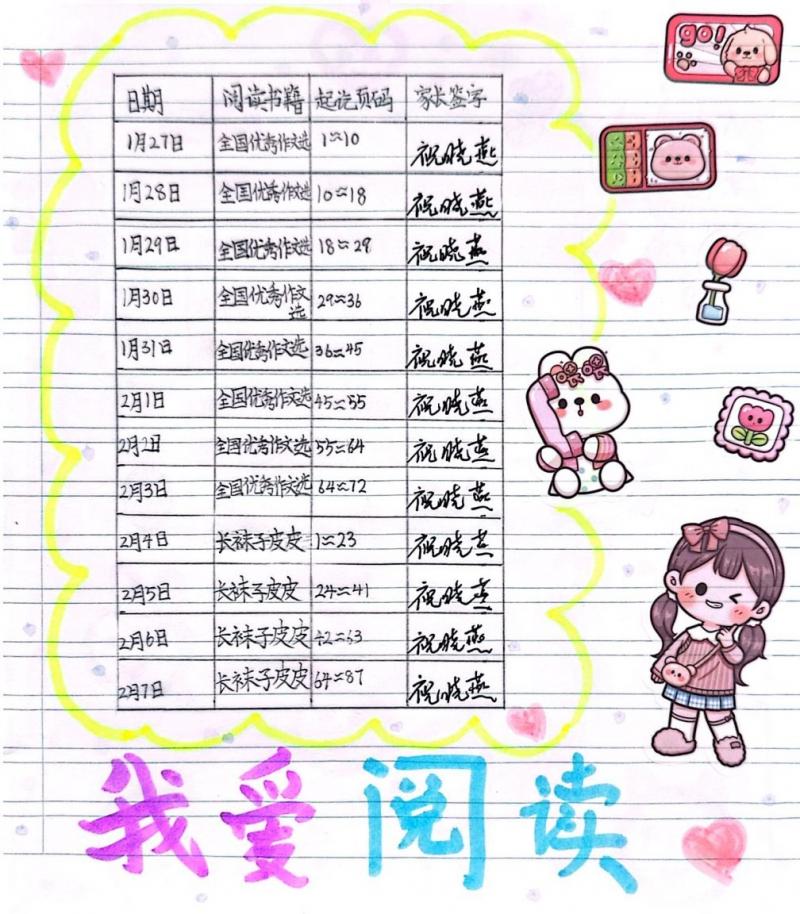 go!
日期 阅读书籍 起讫页码 家长签字
1月27日 全国优秀作文选 1≈10 祝晓燕
1月28日 全国优秀作文选 10≈18 祝晓燕
1月29日 全国优秀作文选 18≈29 祝晓燕
1月30日 全国优秀作文选 29≈36 祝晓燕
1月31日 全国优秀作文选 36≈45 祝晓燕
2月1日 全国优秀作文选 45≈55 祝晓燕
2月2日 全国优秀作文选 55≈64 祝晓燕
2月3日 全国优秀作文选 64≈72 祝晓燕
2月4日 长袜子皮皮 1≈23 祝晓燕
2月5日 长袜子皮皮 24≈41 祝晓燕
2月6日 长袜子皮皮 42≈63 祝晓燕
2月7日 长袜子皮皮 64≈87 祝晓燕
我爱阅读